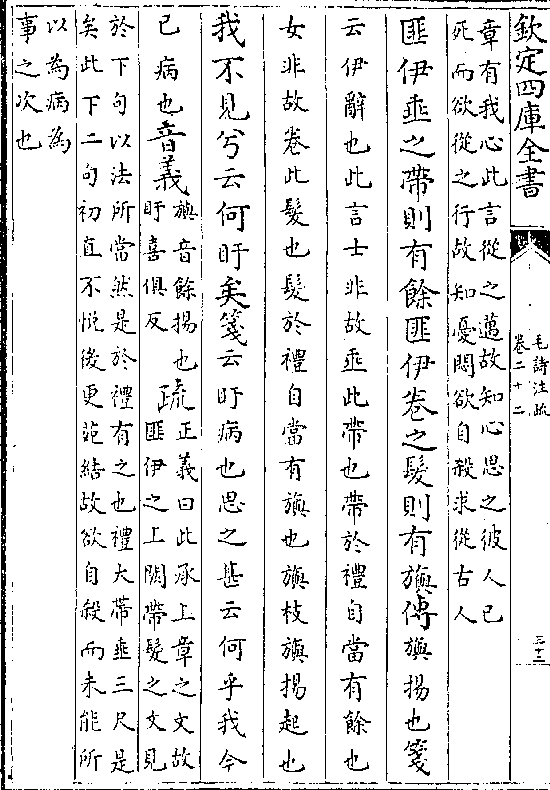 欽定四庫全書
毛詩注疏
卷二十二
三十三
章有我心此言從之邁故知心思之彼人已
死而欲從之行故知憂悶欲自殺求從古人
匪伊垂之帶則有餘匪伊卷之髮則有旟傳旟揚也箋
云伊辭也此言士非故垂此帶也帶於禮自當有餘也
女非故卷此髮也髮於禮自當有旟也旟枝旟揚起也
我不見兮云何盱矣箋云盱病也思之甚云何乎我今
已病也音義旟音餘揚也
盱喜俱反
疏正義曰此承上章之文故
匪伊之上闕帶髮之文見
於下句以法所當然是於禮有之也禮大帶垂三尺是
矣此下二句初直不悅後更苑結故欲自殺而未能所
以為病為
事之次也